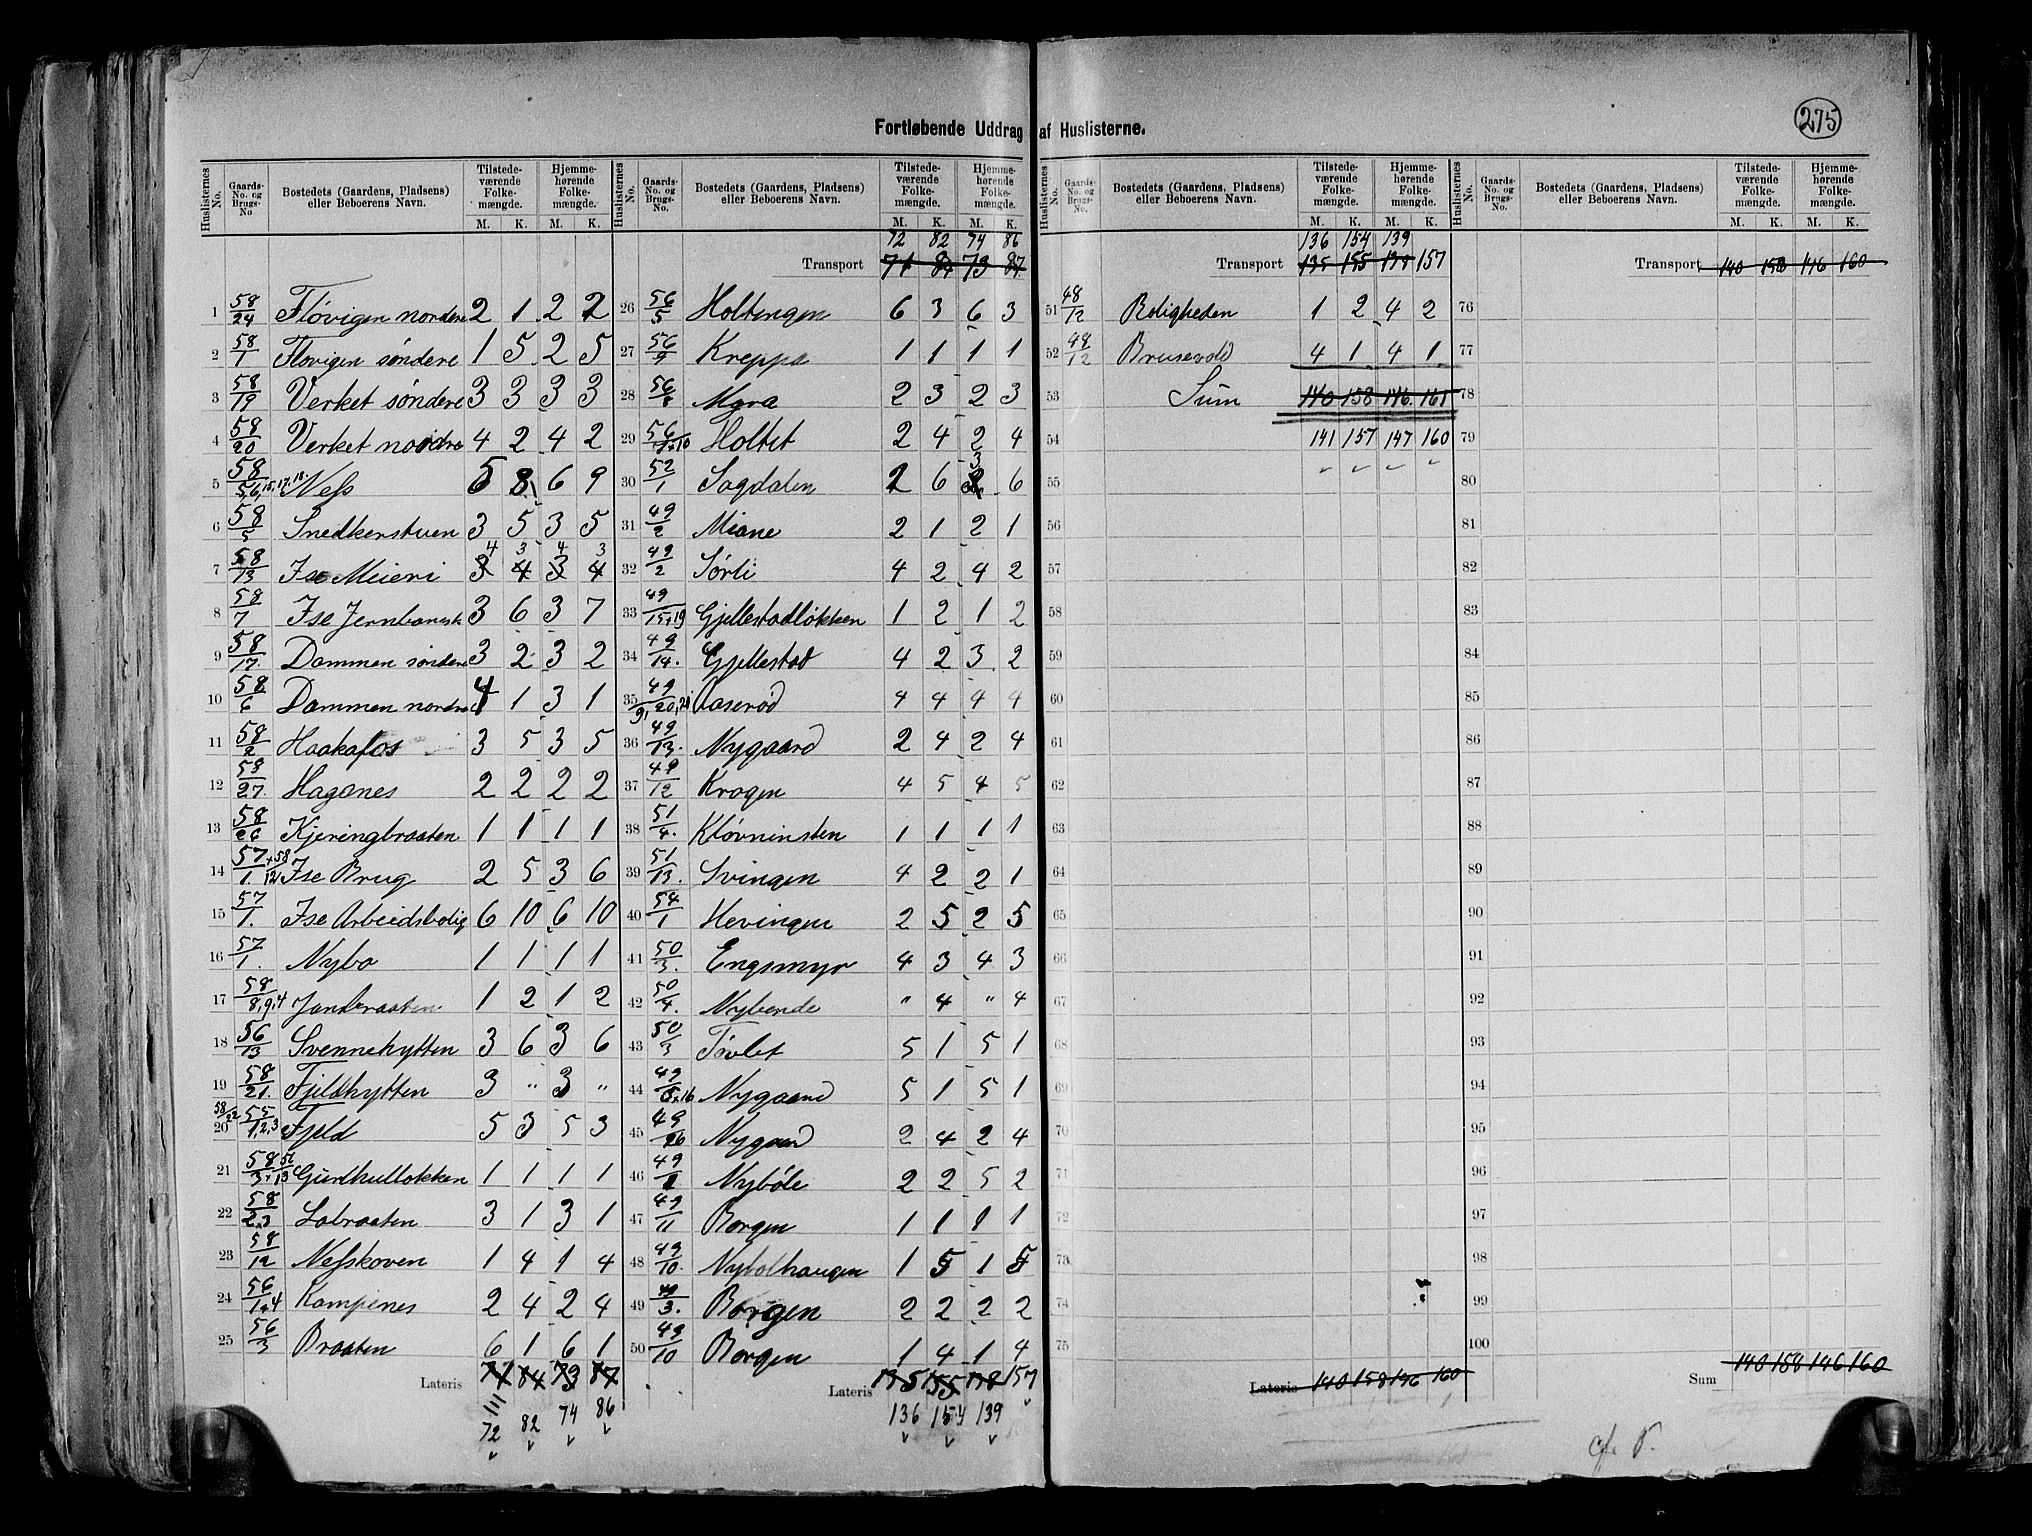 275
Fortløbende Uddrag af Huslisterne.
Huslisternes No. Gaards-No. og Brugs-No. Bostedets (Gaardens, Pladsens) eller Beboerens Navn. Tilstedeværende Folkemængde. Hjemmehørende Folkemængde.
M. K. M. K.
1 58/24 Fløvigen nordere 2 1 2 2
2 58/1 Fløvigen søndere 1 5 2 5
3 58/19 Verket søndere 3 3 3 3
4 58/20 Verket nordre 4 2 4 2
5 58/5,6,15,17,18 Ness 5 8 6 9
6 58/5 Snedkerstuen 3 5 3 5
4 3 4 3
7 58/13 Ise Meieri 3 4 3 4
8 58/7 Ise Jernbanest 3 6 3 7
9 58/17 Dammen søndere 3 2 3 2
10 58/6 Dammen nordre 4 1 3 1
11 58/2 Haakafos 3 5 3 5
12 58/27 Hagenes 2 2 2 2
13 58/26 Kjeringbraaten 1 1 1 1
14 57/1 + 58/12 Ise Brug 2 5 3 6
15 57/1 Ise Arbeidsbolig 6 10 6 10
16 57/1 Nybo 1 1 1 1
17 58/8,9,4 1 2 1 2
18 56/13 Svennehytten 3 6 3 6
19 58/21 Fjeldhytten 3 " 3 "
20 58/22 55/1,2,3 Fjeld 5 3 5 3
21 58/3 1 1 1 1
22 58/23 Labraaten 3 1 3 1
23 58/12 Nesskoven 1 4 1 4
24 56/1+4 Kampenes 2 4 2 4
25 56/3 Braaten 6 1 6 1
Lateris 71 84 73 87
72 82 74 86
72 82 74 86
Transport 71 84 73 87
26 56/5 Holtengen 6 3 6 3
27 56/9 Kreppa 1 1 1 1
28 56/8 Myra 2 3 2 3
29 56/7+10 Holtet 2 4 2 4
3
30 52/1 Sagdalen 2 6 2 6
31 49/2 Miane 2 1 2 1
32 49/2 Sørli 4 2 4 2
33 49/15+19 Gjellestadløkken 1 2 1 2
34 49/14 Gjellestad 4 2 3 2
35 49/9,20,21 Aaserød 4 4 4 4
36 49/13 Nygaard 2 4 2 4
37 49/12 Krogen 4 5 4 5
38 51/4 Kløvninsten 1 1 1 1
39 51/13 Svingen 4 2 2 1
40 54/1 Hevingen 2 5 2 5
41 50/3 Engsmyr 4 3 4 3
42 50/4 Nybende " 4 " 4
43 50/3 Tøvlet 5 1 5 1
44 49/8+16 Nygaard 5 1 5 1
45 49/26 Nygaard 2 4 2 4
46 49/1 Nybøle 2 2 5 2
47 49/11 Borgen 1 1 1 1
48 49/10 Nybolhaugen 1 5 1 5
49 49/3 Borgen 2 2 2 2
50 49/10 Borgen 1 4 1 4
Lateris 135 155 138 157
136 154 139
Huslisternes No. Gaards-No. og Brugs-No. Bostedets (Gaardens, Pladsens) eller Beboerens Navn. Tilstedeværende Folkemængde. Hjemmehørende Folkemængde.
M. K. M. K.
136 154 139
Transport 135 155 138 157
51 48/12 Boligheden 1 2 4 2
52 48/12 Brusevold 4 1 4 1
53 Sum 140 158 146 161
54 141 157 147 160
55
56
57
58
59
60
61
62
63
64
65
66
67
68
69
70
71
72
73
74
75
Lateris 140 158 146 160
Transport 140 158 146 160
76
77
78
79
80
81
82
83
84
85
86
87
88
89
90
91
92
93
94
95
96
97
98
99
100
Sum 140 158 146 160